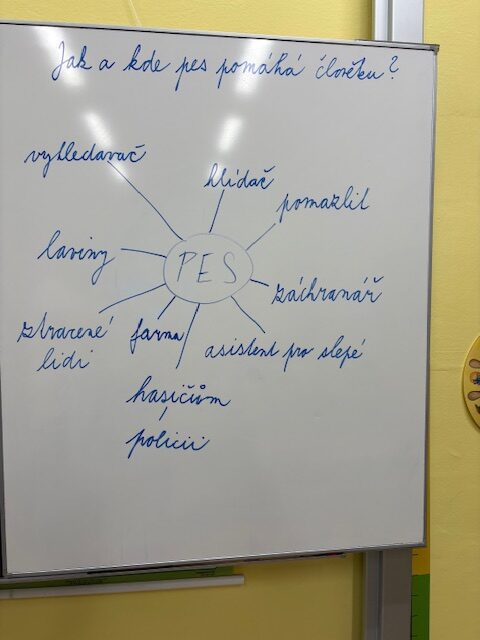 Jak a kde pes pomáhá člověku?
vyhledavač
hlídač
pomazlit
laviny
PES
záchranář
ztracené
lidi
farma
asistent pro slepé
hasičům
policii